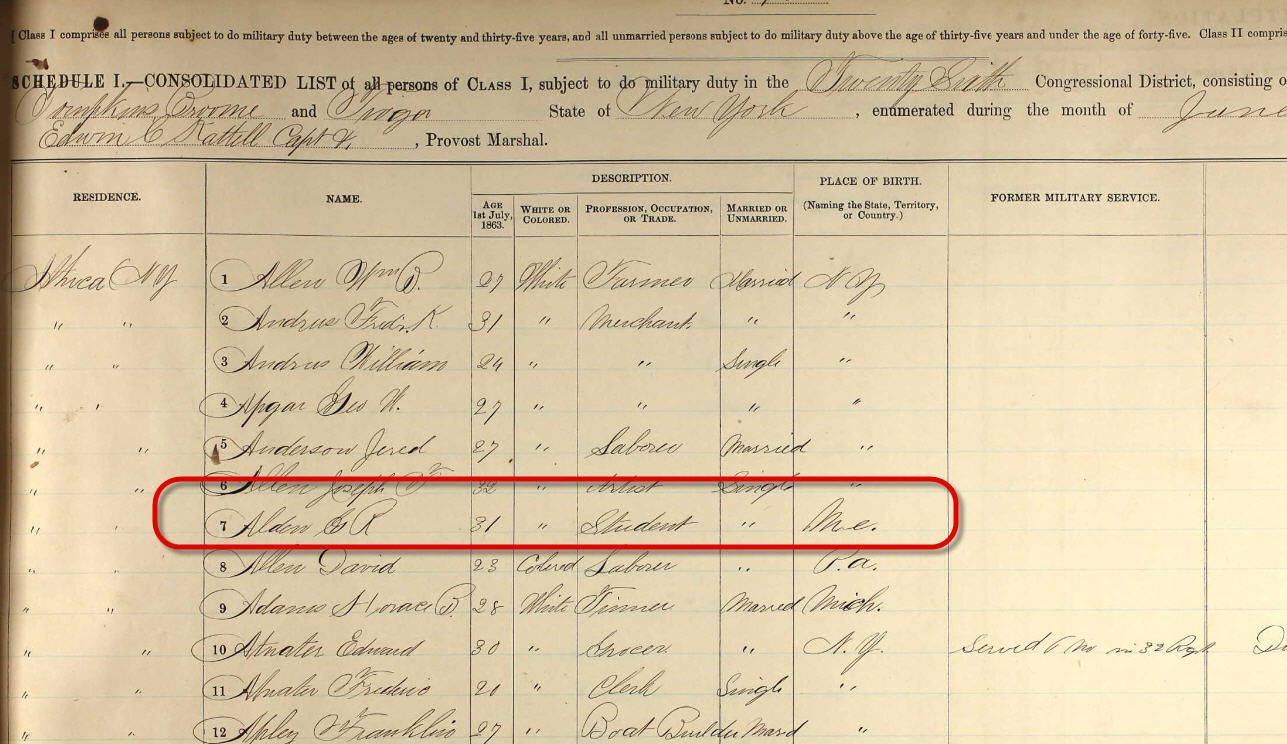 No.
[ Class I comprises all persons subject to do military duty between the ages of twenty and thirty-five years, and all unmarried persons subject to do military duty above the age of thirty-five years and under the age of forty-five. Class II compris
SCHEDULE I.—CONSOLIDATED LIST of all persons of CLASS I, subject to do military duty in the Twenty Sixth Congressional District, consisting o
Tompkins Broome and Tioga State of New York, enumerated during the month of June
Edwin C Capt &, Provost Marshal.
DESCRIPTION.
RESIDENCE. NAME. AGE 1st July, 1863. WHITE OR COLORED. PROFESSION, OCCUPATION, OR TRADE. MARRIED OR UNMARRIED. PLACE OF BIRTH. (Naming the State, Territory, or Country.) FORMER MILITARY SERVICE.
Ithica N Y 1 Allen Wm B. 27 White Farmer Married N Y
" " 2 Andrus Fredr. K. 31 " Merchant " "
" " 3 Andrus William 24 " " Single "
" " 4 Apgar Geo W. 27 " " " "
" " 5 Anderson Jered 27 " Laborer Married "
" " 6 Allen Joseph F 32 " Artist Single "
" " 7 Alden G R 31 " Student " Me.
" " 8 Allen David 23 Colored Laborer " P.a.
" " 9 Adams Horace B. 28 White Tinner Married Mich.
" " 10 Atwater Edward 30 " Grocer " N.Y. Served 6 Mo in 32 Regt
" " 11 Atwater Frederic 20 " Clerk Single "
" " 12 Apley Franklin 27 " Boat Builder Mard "